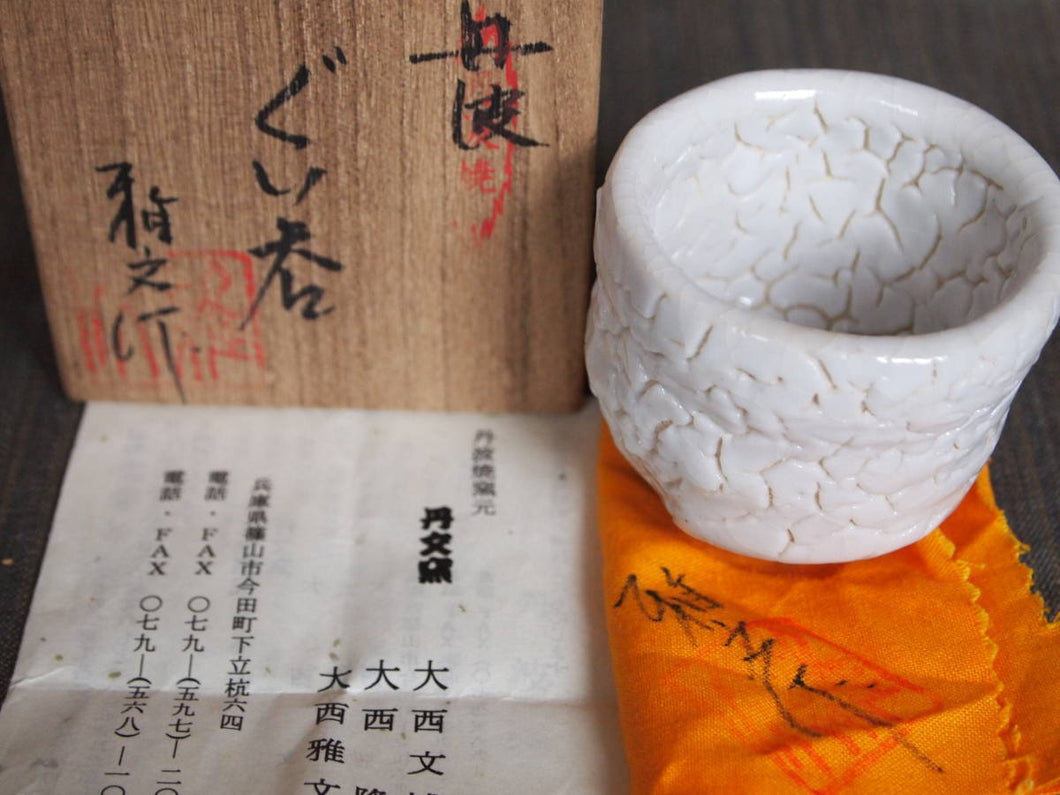 丹波
ぐい呑
雅文作
丹波焼窯元
丹文窯
大西文
大西
大西雅文
兵庫県篠山市今田町下立杭六四
電話・FAX 〇七九―(五九七)―二〇
電話・FAX 〇七九―(五六八)―一〇
雅文